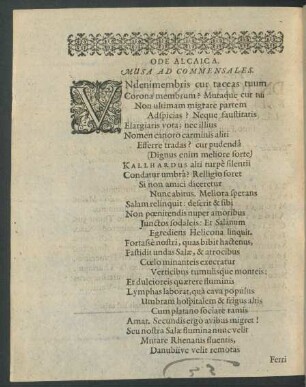 ODE ALCAICA.
MUSA AD COMMENSALES.
VNdenimembris cur taceas tuum
Coronæ membrum? Mutaque cur tui
Non ultimam migrare partem
Adspicias? Neque faustitatis
Elargiaris vota: nec illius
Nomen canoro carminis aliti
Efferre tradas? cur pudendâ
(Dignus enim meliore sorte)
KALLHARDUS alti turpè silentii
Condatur umbrâ? Relligio foret
Si non amici diceretur
Nunc abitus. Meliora sperans
Salam relinquit: deserit & sibi
Non pœnitendis nuper amoribus
Junctos sodaleis: Et Salanum
Egrediens Helicona linquit.
Fortasse nostri, quas bibit hactenus,
Fastidit undas Salæ, & atrocibus
Cœlo minanteis execratur
Verticibus tumulisque monteis:
Et dulcioreis quærere fluminis
Lymphas laborat, quà cava populus
Umbram hospitalem & frigus altis
Cum platano sociare ramis
Amat. Secundis ergò avibus migret!
Seu nostra Salæ flumina nunc velit
Mutare Rhenanis fluentis,
Danubiive velit remotas
Ferri
53